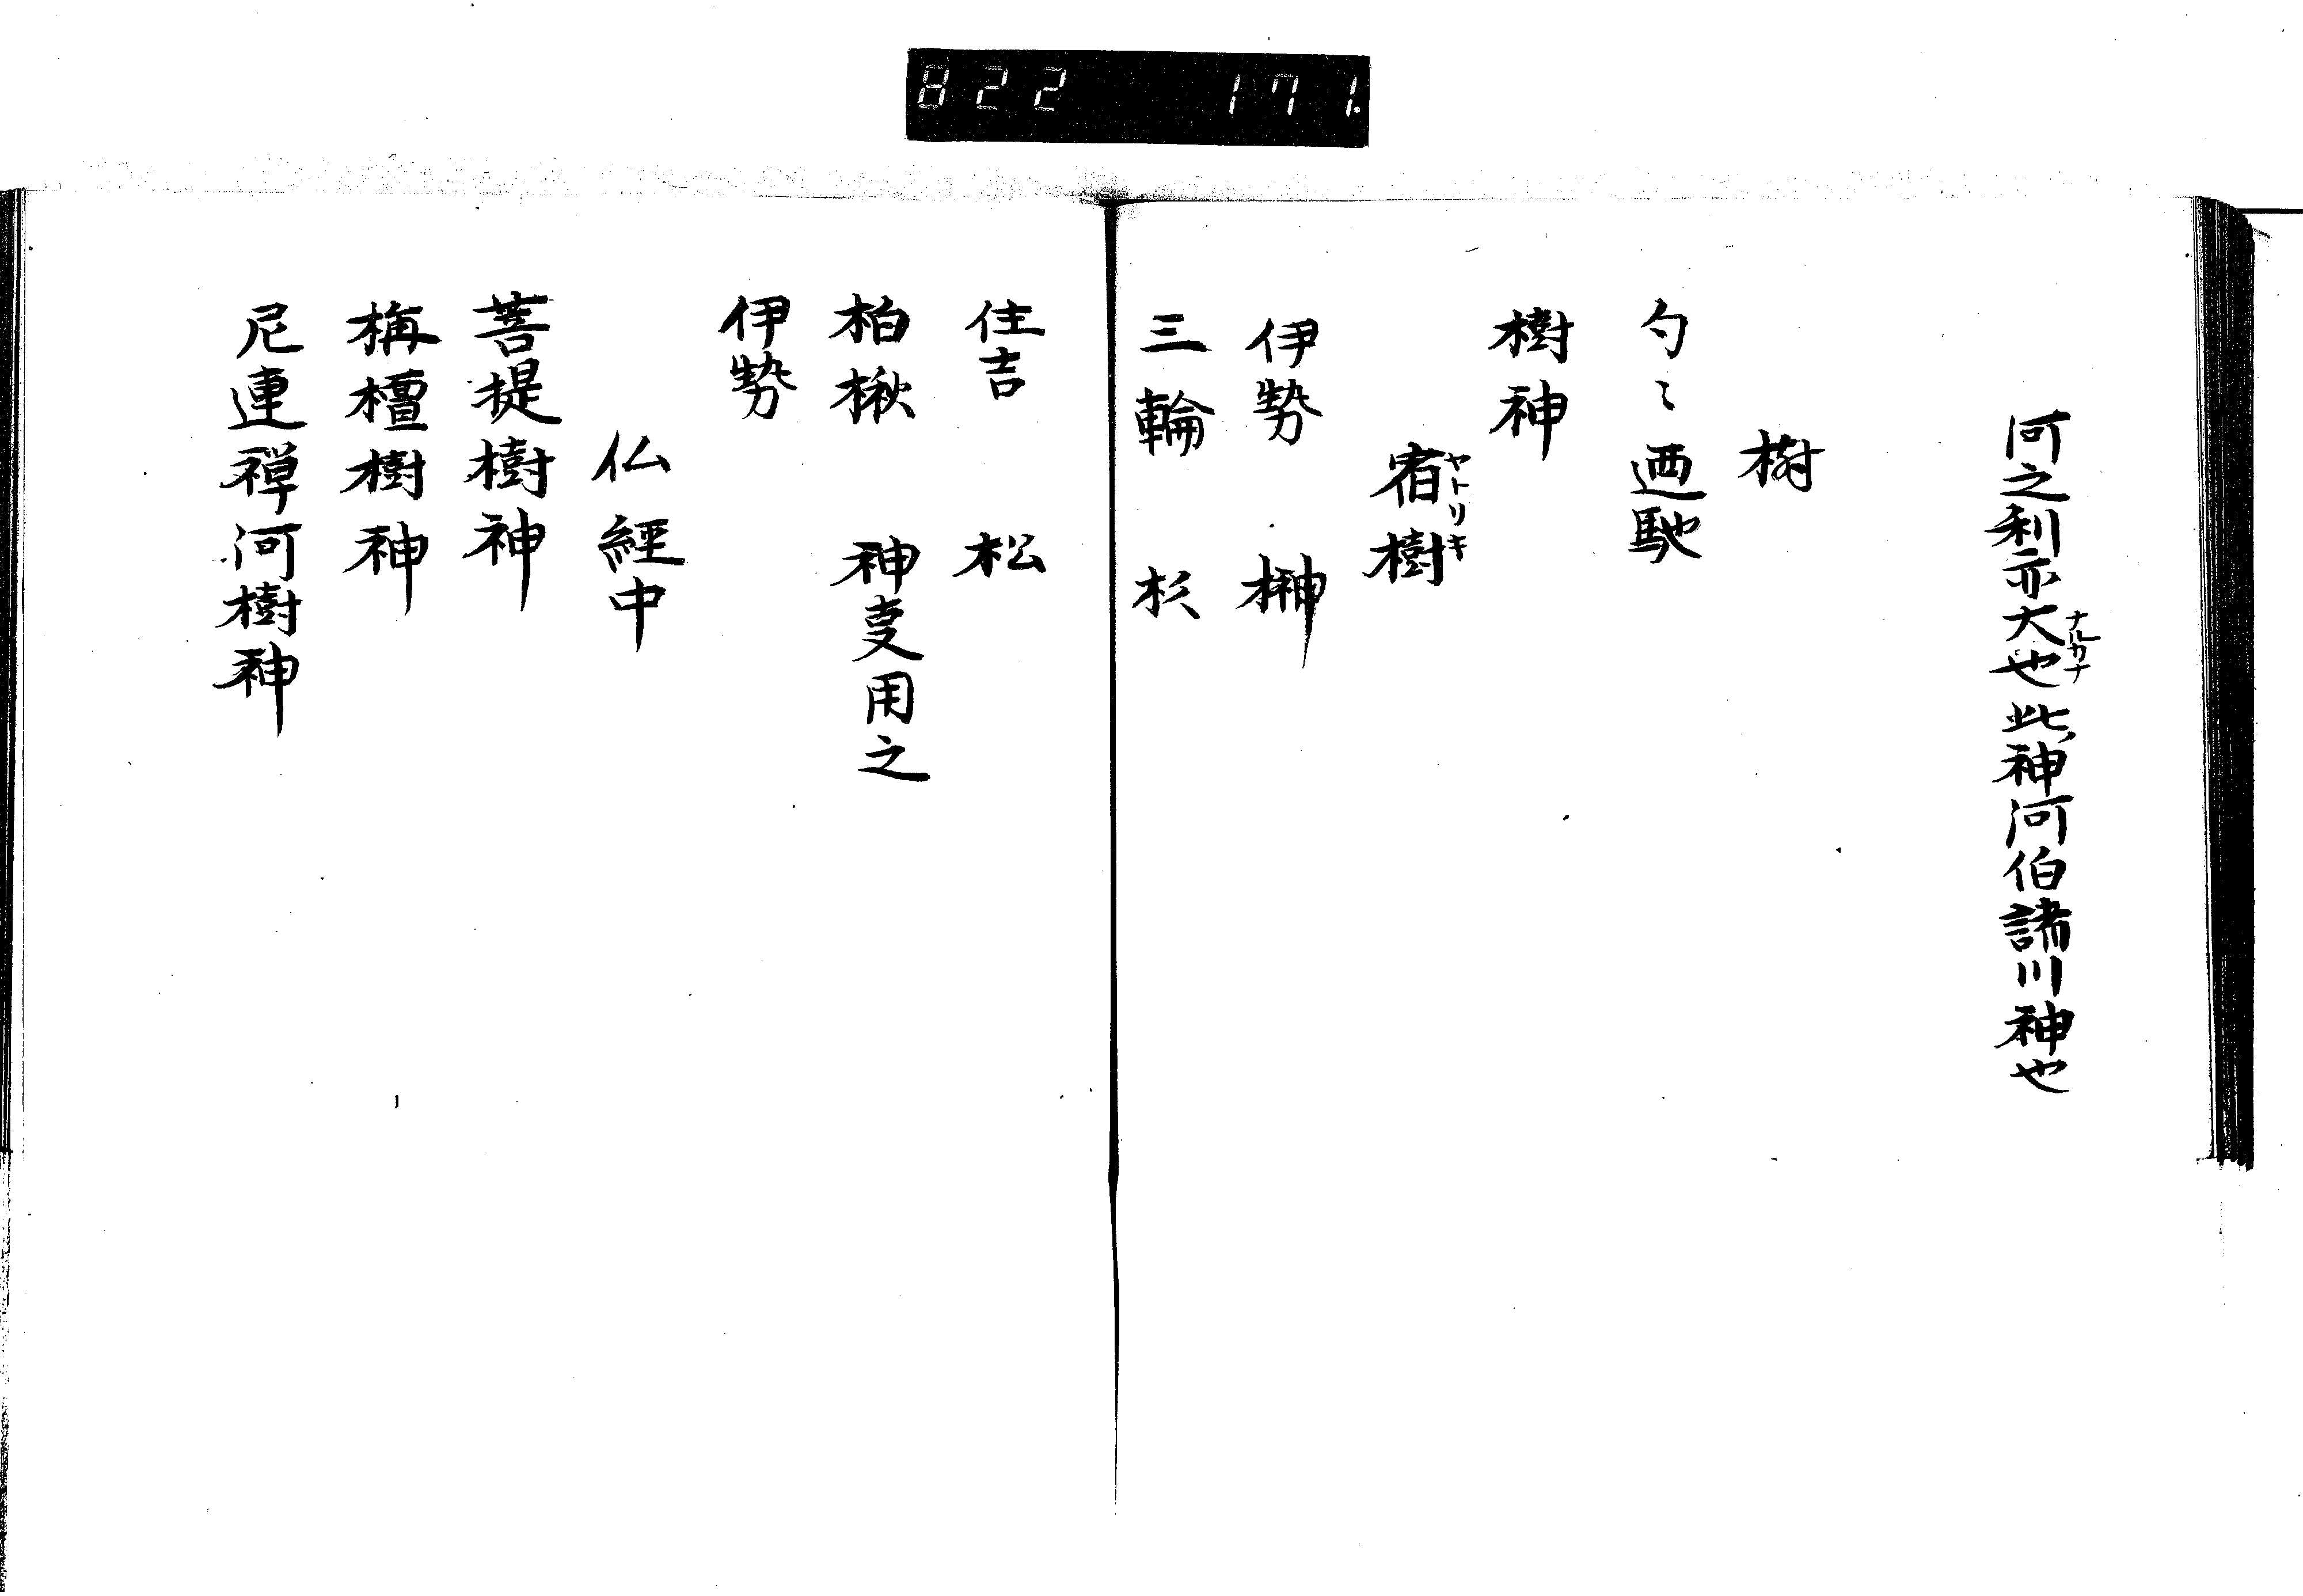 822 171.
河之利亦大也ナルカナ此神河伯諸川神也
樹
勾〻廼馳
樹神
宿樹ヤトリキ
伊勢 榊
三輪 杉
住吉 松
柏楸 神叓用之
伊勢
仏経中
菩提樹神
栴檀樹神
尼連禅河樹神